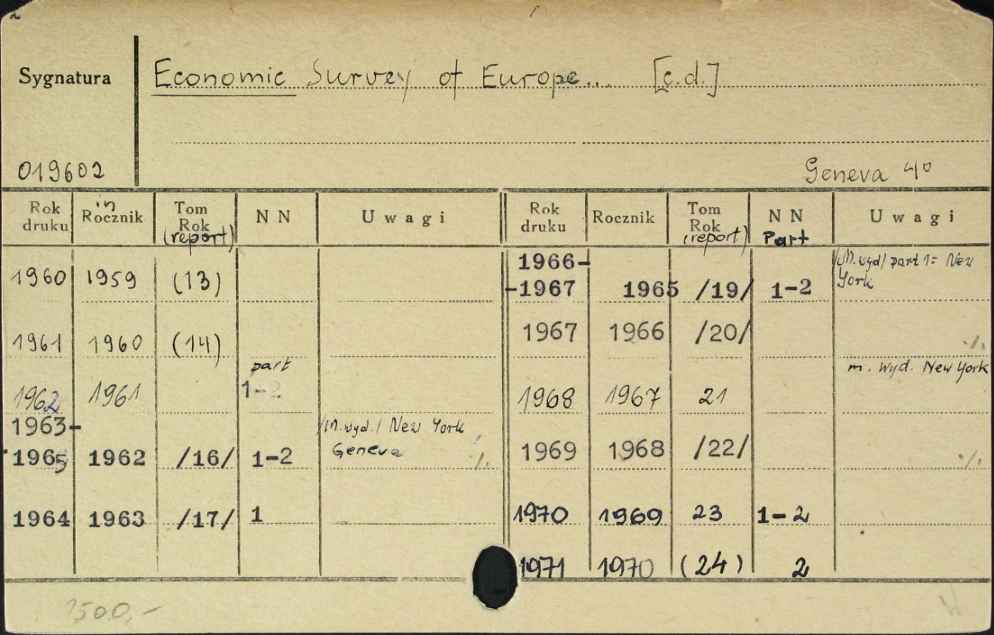 Sygnatura
Economic Survey of Europe... [c.d.]
019602
Geneva 4º
Rok druku in Rocznik Tom Rok (report) NN Uwagi
1960 1959 (13)
1961 1960 (14)
1962 1961 part 1-2
1963-1965 1962 /16/ 1-2 /M.wyd./ New York Geneva ./.
1964 1963 /17/ 1
Rok druku Rocznik Tom Rok (report) NN Part Uwagi
1966--1967 1965 /19/ 1-2 /M.wyd/ part 1= New York
1967 1966 /20/ ./.
1968 1967 21 m. wyd. New York
1969 1968 /22/ ./.
1970 1969 23 1-2
1971 1970 (24) 2
1500,-